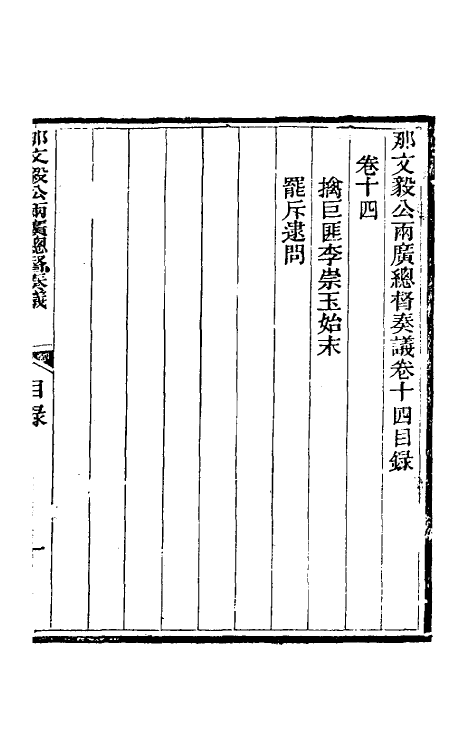 那文毅公兩廣總督奏議卷十四目録
卷十四
擒巨匪李崇玉始末
罷斥逮問
那文毅公兩廣總督奏議
目録
一